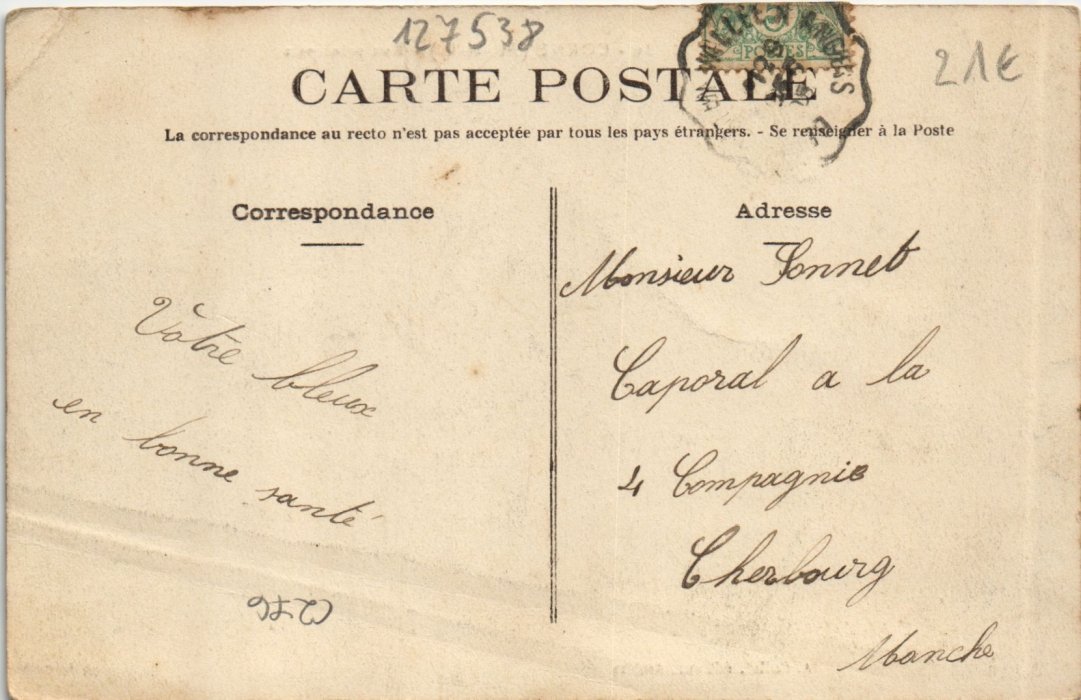 127538
21€
CARTE POSTALE
La correspondance au recto n'est pas acceptée par tous les pays étrangers. - Se renseigner à la Poste
Correspondance
Votre bleux
en bonne santé
Adresse
Monsieur Sonnet
Caporal a la
4 Compagnie
Cherbourg
Manche
POSTES